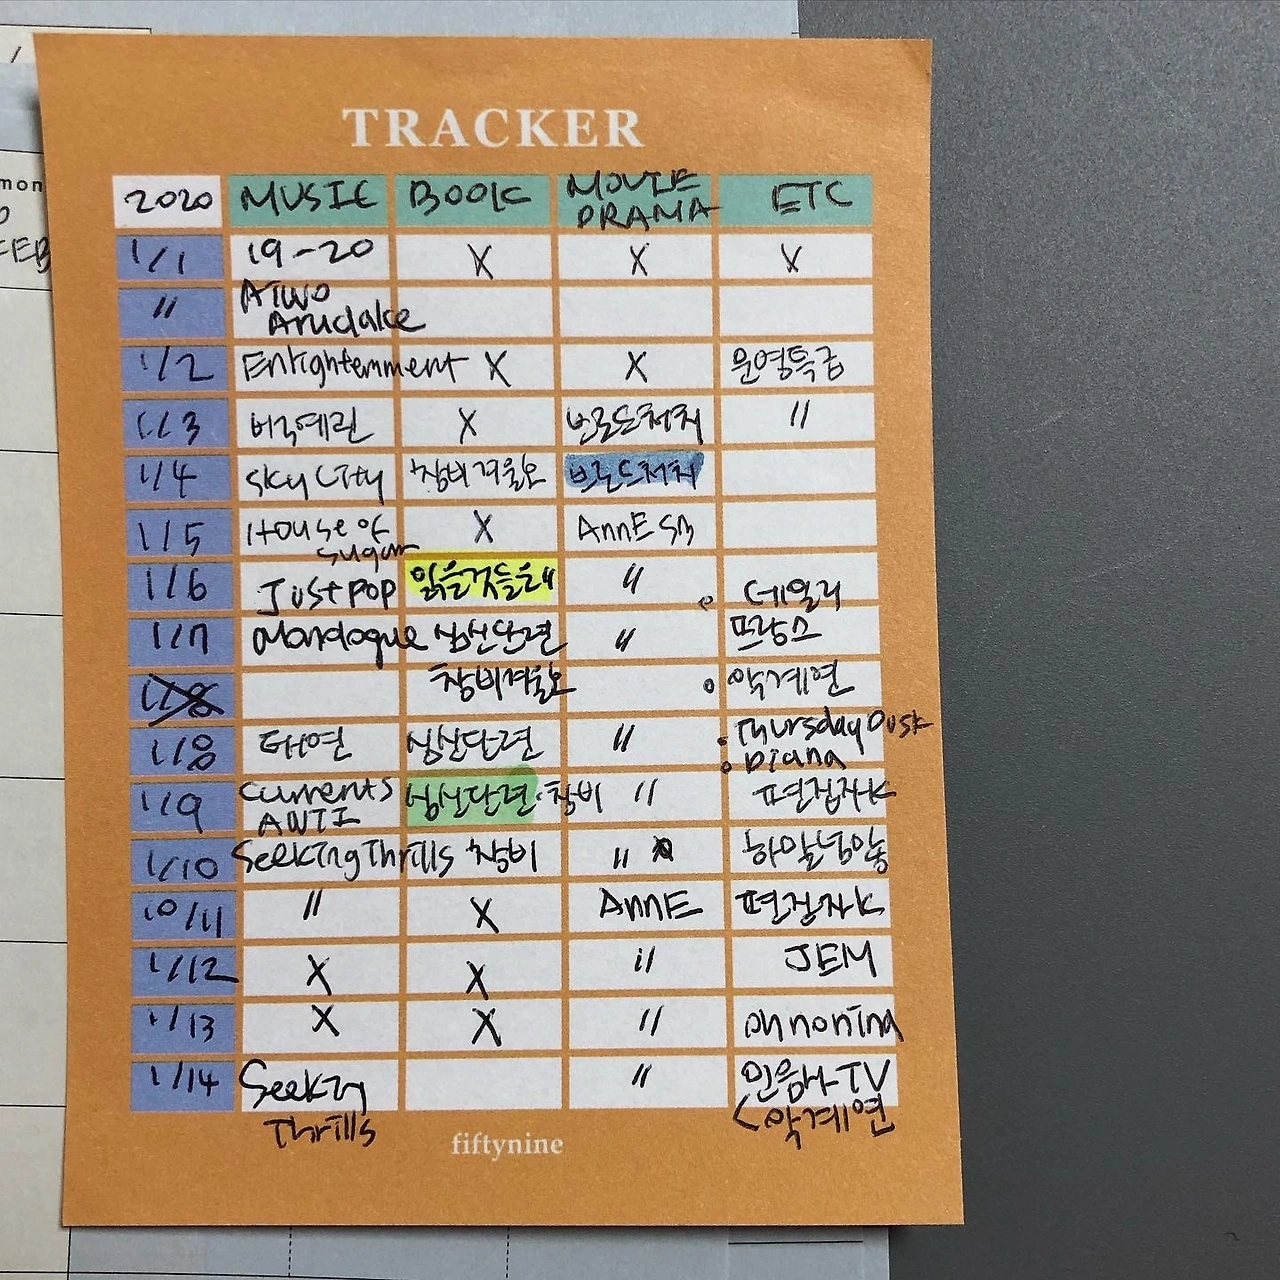 TRACKER
2020 MUSIC BOOK MOVIE DRAMA ETC
1/1 19-20 X X X
〃 Arudake
1/2 Enlightenment X X 문명특급
1/3 백예린 X 브로드처치 〃
1/4 Sky City 창비겨울호 브로드처치
1/5 House of Sugar X AnnE S3
1/6 Just pop 읽을것들은 〃 데일리
1/7 심신단련 〃 프랑스
창비겨울호 악계연
1/8 태연 심신단련 〃 Thursday Dusk
Diana
1/9 Currents 심신단련·창비 〃 편집자K
ANTI
1/10 Seeking Thrills 창비 〃
10/11 〃 X AnnE 편집자K
1/12 X X 〃 JEM
1/13 X X 〃 oh nonina
1/14 Seeking 〃 민음사TV
Thrills <악계연
fiftynine
mon
FEB